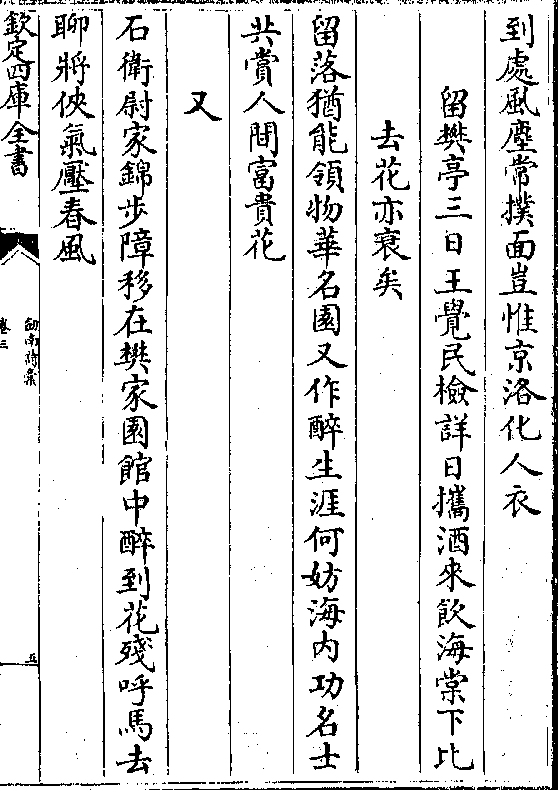 到處風塵常撲面豈惟京洛化人衣
留樊亭三日王覺民檢詳日攜酒來飲海棠下比
去花亦衰矣
留落猶能領物華名園又作醉生涯何妨海内功名士
共賞人間富貴花
又
石衛尉家錦步障移在樊家園館中醉到花殘呼馬去
聊將俠氣壓春風
欽定四庫全書
劒南詩稾
卷三
五